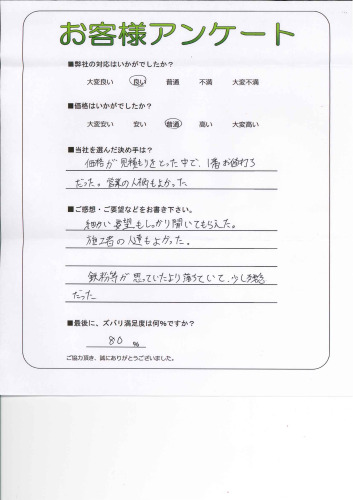 お客様アンケート
■弊社の対応はいかがでしたか？
大変良い 良い 普通 不満 大変不満
■価格はいかがでしたか？
大変安い 安い 普通 高い 大変高い
■当社を選んだ決め手は？
価格が見積もりをとった中で、1番お値打ち
だった。営業の人柄もよかった
■ご感想・ご要望などをお書き下さい。
細かい要望もしっかり聞いてもらえた。
施工者の人達もよかった。
鉄粉等が思っていたより落ちていて、少し残念
だった
■最後に、ズバリ満足度は何%ですか？
80 %
ご協力頂き、誠にありがとうございました。